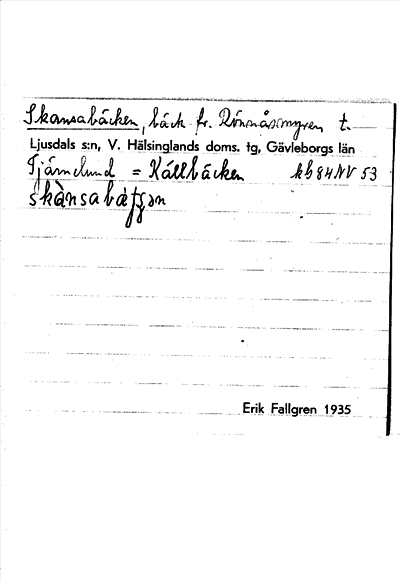 Skansabäcken, bäck fr. Rönnåsmyren t.
Ljusdals s:n, V. Hälsinglands doms. tg, Gävleborgs län
Tjärnelund = Källbäcken kb 84 NV 53
skànsabæ̀
Erik Fallgren 1935